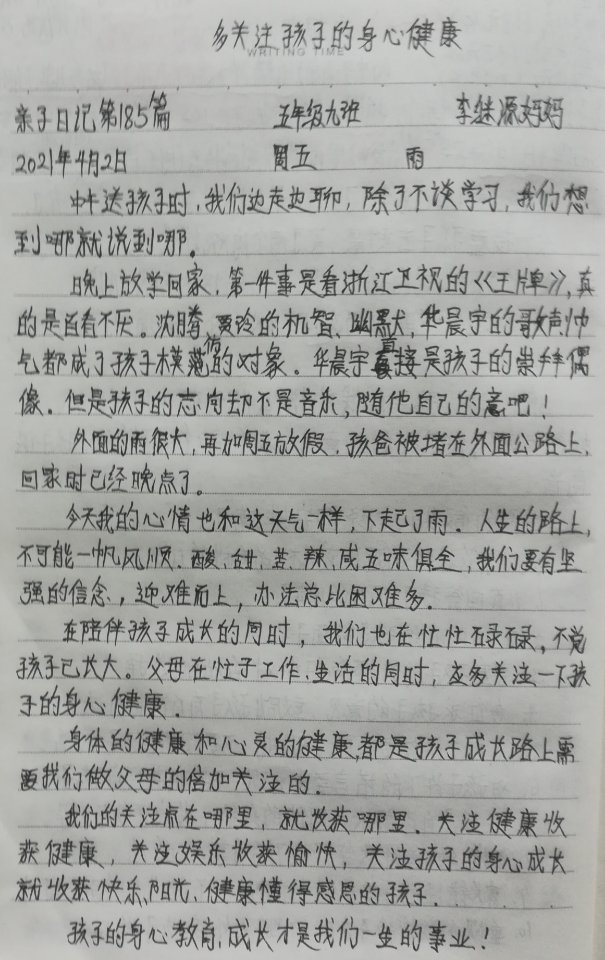 多关注孩子的身心健康
WRITING TIME
亲子日记第185篇 五年级九班 李继源妈妈
2021年4月2日 周五 雨
中午送孩子时,我们边走边聊,除了不谈学习,我们想
到哪就说到哪。
晚上放学回家,第一件事是看浙江卫视的《王牌》,真
的是百看不厌。沈腾、贾玲的机智、幽默,华晨宇的歌声帅
气都成了孩子模仿的对象。华晨宇直接是孩子的崇拜偶
像。但是孩子的志向却不是音乐,随他自己的意吧!
外面的雨很大,再加周五放假,孩爸被堵在外面公路上,
回家时已经晚点了。
今天我的心情也和这天气一样,下起了雨。人生的路上,
不可能一帆风顺。酸、甜、苦、辣、咸五味俱全,我们要有坚
强的信念,迎难而上,办法总比困难多。
在陪伴孩子成长的同时,我们也在忙忙碌碌,不觉
孩子已长大。父母在忙于工作、生活的同时,应多关注一下孩
子的身心健康.
身体的健康和心灵的健康,都是孩子成长路上需
要我们做父母的倍加关注的.
我们的关注点在哪里,就收获哪里。关注健康收
获健康,关注娱乐收获愉快,关注孩子的身心成长
就收获快乐、阳光、健康懂得感恩的孩子.
孩子的身心教育,成长才是我们一生的事业!